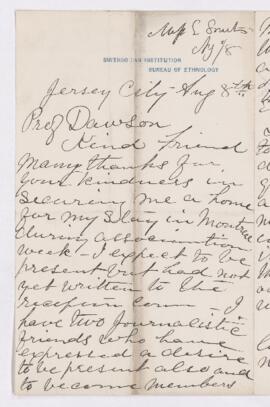 Mrs E Smith
Ag 8
SMITHSONIAN INSTITUTION
BUREAU OF ETHNOLOGY
Jersey City Aug 8th
Prof Dawson
Kind friend
Many thanks for
your kindness in
securing me a home
for my stay in Montreal
during association
week - I expect to be
present but had not
yet written to the
reception com I
have two Journalistic
friends who have
expressed a desire
to be present also and
to become members